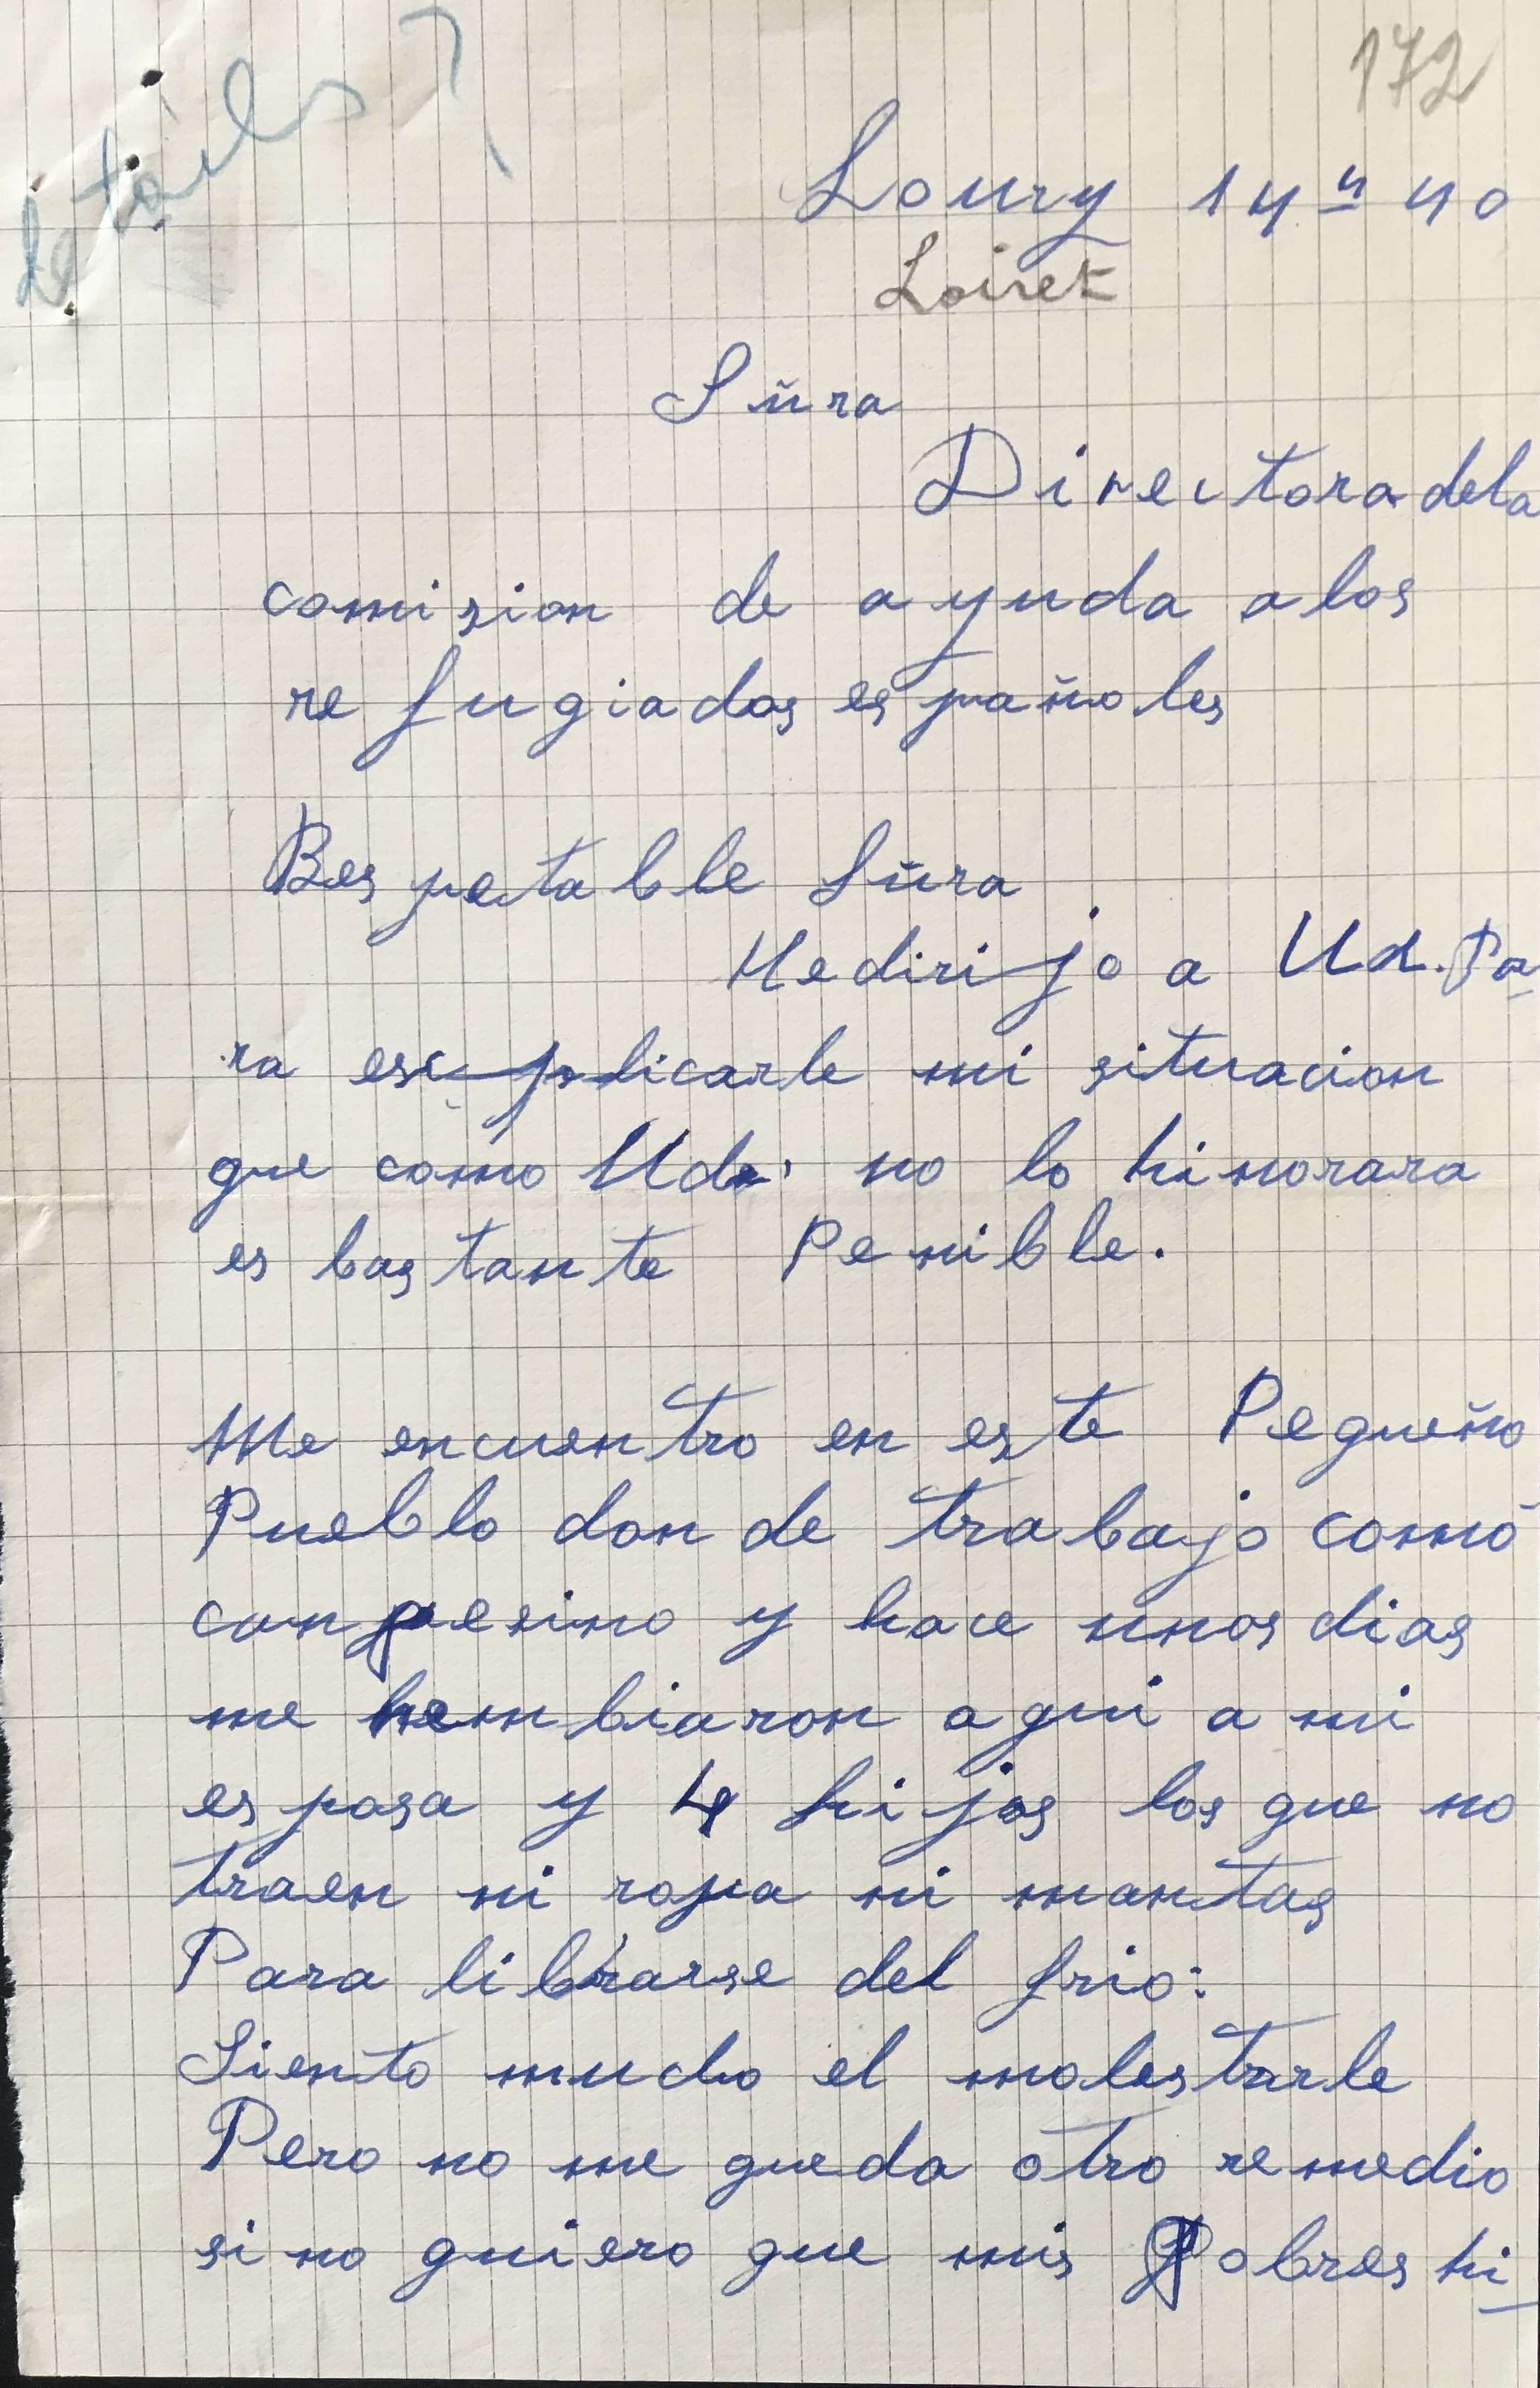 détails?
172
Loury 14 4 40
Loiret
Sñra
Directora dela
comision de ayuda alos
refugiados españoles
Respetable Sñra
Me dirijo a Ud. Pa-
ra escplicarle mi situacion
que como Uds. no lo hinorara
es bastante Penible.
Me encuentro en este Pequeño
Pueblo donde trabajo como
canpesino y hace unos dias
me hembiaron aqui a mi
esposa y 4 hijos los que no
traen ni ropa ni mantas
Para librarse del frio:
Siento mucho el molestarle
Pero no me queda otro remedio
si no quiero que mis Pobres hi-